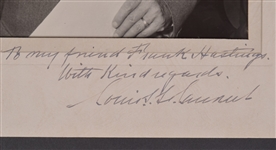 To my friend Frank Hastings.
With Kind regards.
Louis